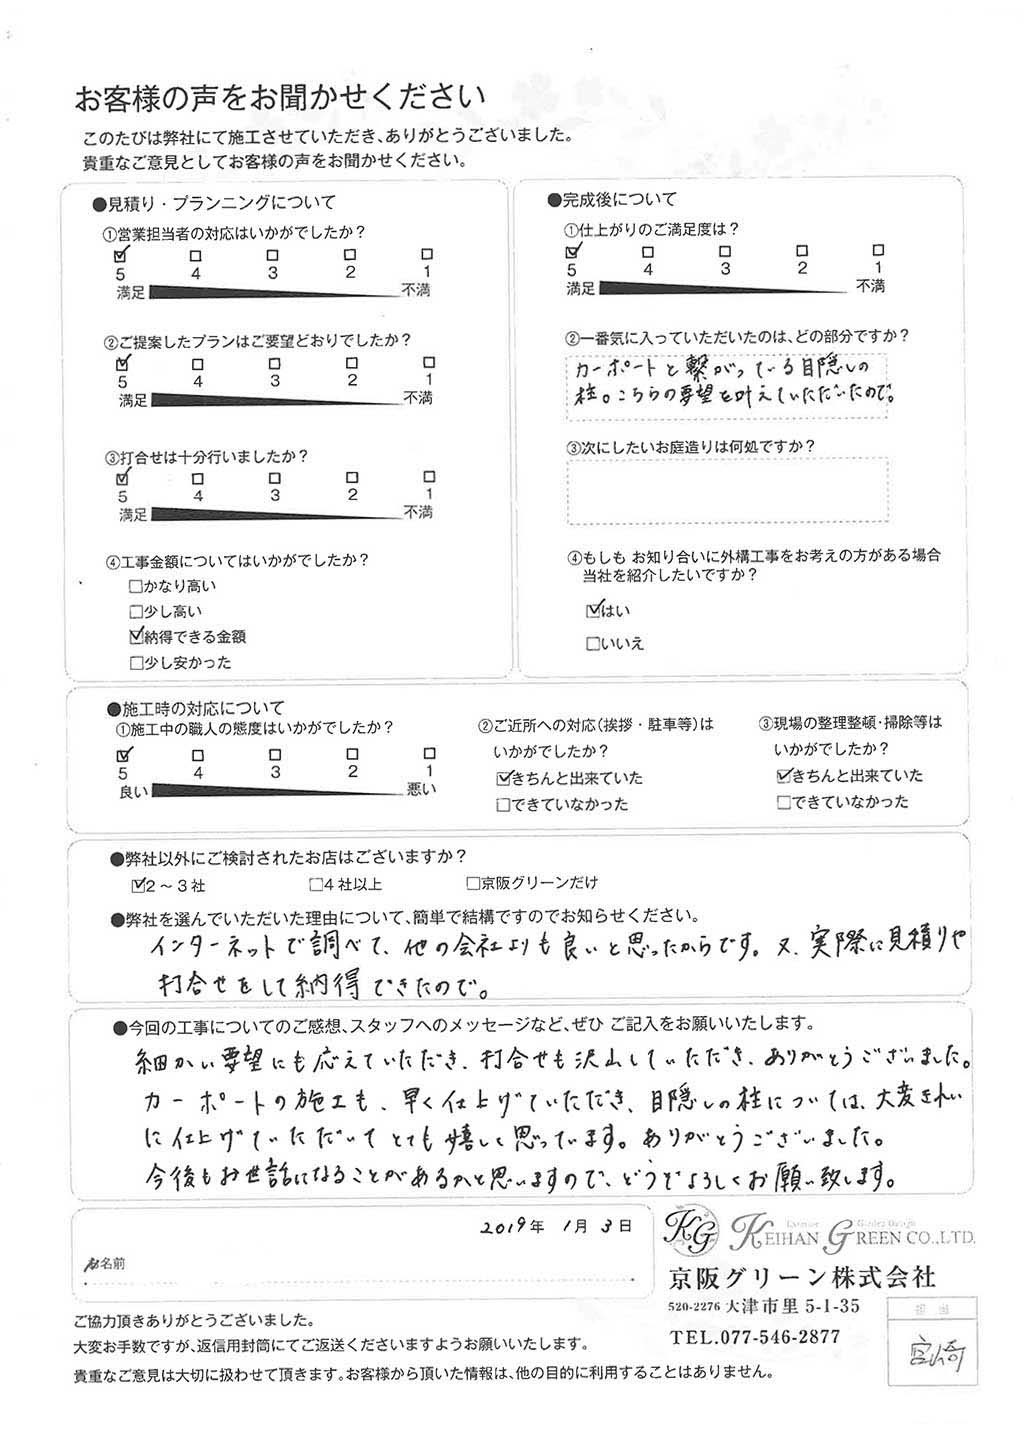 お客様の声をお聞かせください
このたびは弊社にて施工させていただき、ありがとうございました。
貴重なご意見としてお客様の声をお聞かせください。
●見積り・プランニングについて
①営業担当者の対応はいかがでしたか?
☑ □ □ □ □
5 4 3 2 1
満足 不満
②ご提案したプランはご要望どおりでしたか?
☑ □ □ □ □
5 4 3 2 1
満足 不満
③打合せは十分行いましたか?
☑ □ □ □ □
5 4 3 2 1
満足 不満
④工事金額についてはいかがでしたか?
□かなり高い
□少し高い
☑納得できる金額
□少し安かった
●完成後について
①仕上がりのご満足度は?
☑ □ □ □ □
5 4 3 2 1
満足 不満
②一番気に入っていただいたのは、どの部分ですか?
カーポートと繋がっている目隠しの
柱。こちらの要望を叶えていただいたので。
③次にしたいお庭造りは何処ですか?
④もしも お知り合いに外構工事をお考えの方がある場合
当社を紹介したいですか?
☑はい
□いいえ
●施工時の対応について
①施工中の職人の態度はいかがでしたか?
☑ □ □ □ □
5 4 3 2 1
良い 悪い
②ご近所への対応(挨拶・駐車等)は
いかがでしたか?
☑きちんと出来ていた
□できていなかった
③現場の整理整頓・掃除等は
いかがでしたか?
☑きちんと出来ていた
□できていなかった
●弊社以外にご検討されたお店はございますか?
☑2〜3社 □4社以上 □京阪グリーンだけ
●弊社を選んでいただいた理由について、簡単で結構ですのでお知らせください。
インターネットで調べて、他の会社よりも良いと思ったからです。又、実際に見積りや
打合せをして納得できたので。
●今回の工事についてのご感想、スタッフへのメッセージなど、ぜひ ご記入をお願いいたします。
細かい要望にも応えていただき、打合せも沢山していただき、ありがとうございました。
カーポートの施工も、早く仕上げていただき、目隠しの柱については、大変きれい
に仕上げていただいてとても嬉しく思っています。ありがとうございました。
今後もお世話になることがあるかと思いますので、どうぞよろしくお願い致します。
2019年 1月 3日
お名前
KG Exterior Garden Design
KEIHAN GREEN CO.,LTD.
京阪グリーン株式会社
520-2276 大津市里 5-1-35
TEL.077-546-2877
担当
宮崎
ご協力頂きありがとうございました。
大変お手数ですが、返信用封筒にてご返送くださいますようお願いいたします。
貴重なご意見は大切に扱わせて頂きます。お客様から頂いた情報は、他の目的に利用することはありません。